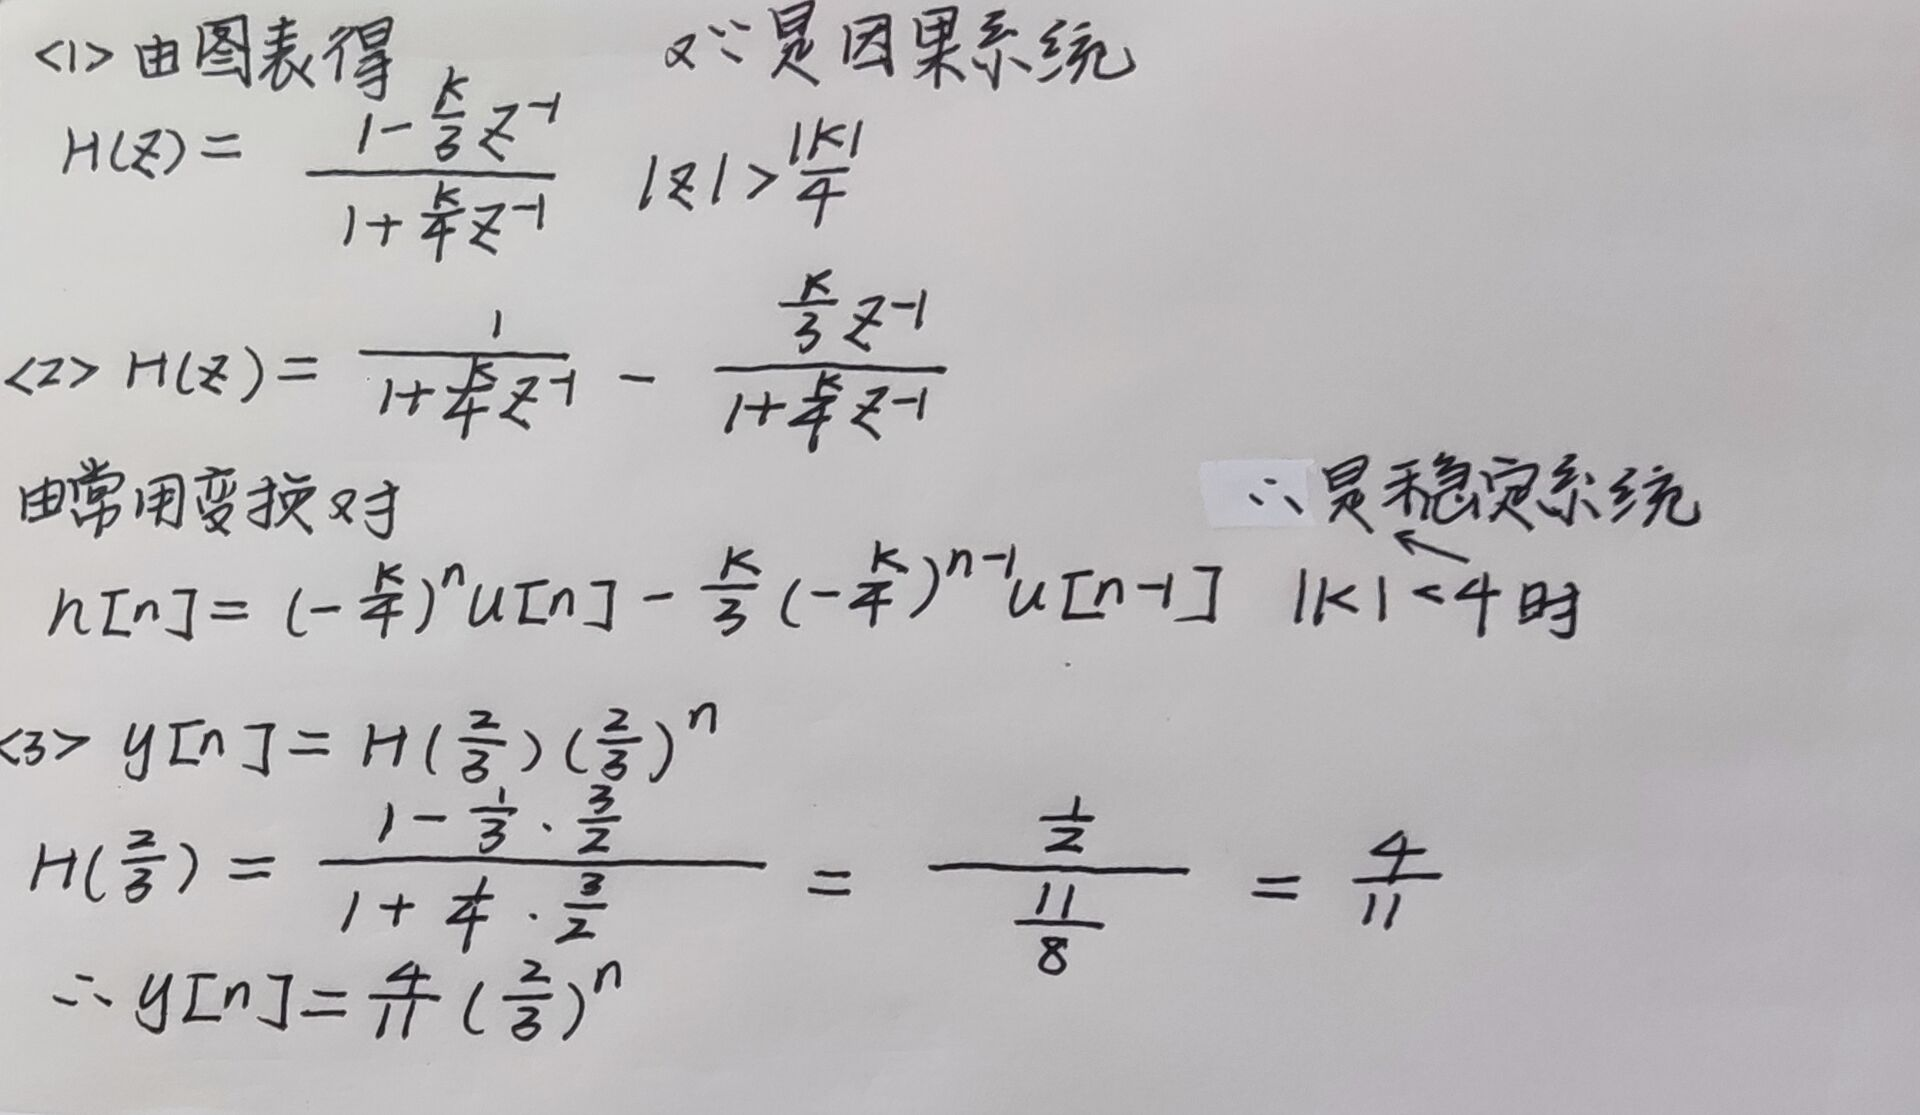 <1>由图表得 又∵是因果系统
H(z) = (1 - k/3 z⁻¹) / (1 + k/4 z⁻¹) |z| > |k|/4
<2> H(z) = 1 / (1 + k/4 z⁻¹) - (k/3 z⁻¹) / (1 + k/4 z⁻¹)
由常用变换对 ∴是稳定系统
h[n] = (-k/4)ⁿ u[n] - k/3 (-k/4)ⁿ⁻¹ u[n-1] |k| < 4 时
<3> y[n] = H(2/3)(2/3)ⁿ
H(2/3) = (1 - 1/3 · 3/2) / (1 + 1/4 · 3/2) = (1/2) / (11/8) = 4/11
∴ y[n] = 4/11 (2/3)ⁿ